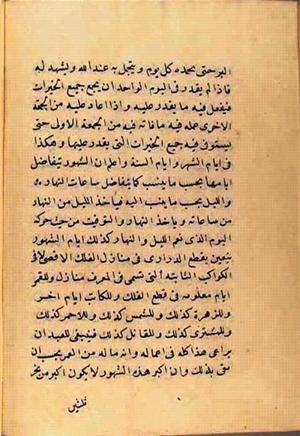 البر حتى يحمده كل يوم ويتجمل به عند الله ويشهد له
فاذا لم يقدر فى اليوم الواحد ان يجمع جميع الخيرات
فيفعل فيه ما يقدر عليه واذا عاد عليه من الجمعة
الاخرى عمله فيه ما فاته فيه من الجمعة الاولى حتى
يستوفى فيه جميع الخيرات التى يقدر عليها وهكذا
فى ايام الشهر وايام السنة واعلم ان الشهور تتفاضل
ايامها بحسب ما ينسب كما يتفاضل ساعات النهار
والليل بحسب ما ينسب اليه فياخذ الليل من النهار
من ساعاته وياخذ النهار والتوقيت من حيث حركة
اليوم الذى نعم الليل والنهار وكذلك ايام الشهور
يتعين بقطع الدرارى فى منازل الفلك الاقصى لا فى
الكواكب الثابتة التى تسمى فى العرف منازل وللقمر
ايام معلومة فى قطع الفلك وللكاتب ايام اخر
وللزهرة كذلك وللشمس كذلك وللاحمر كذلك
وللمشترى كذلك وللمقاتل كذلك فينبغى للعبد ان
يراعى هذا كله فى اعماله وانه ما له من العمر بحيث ان
يفى بذلك وان اكبر هذه الشهور لا يكون اكبر من نحو
ثلثين